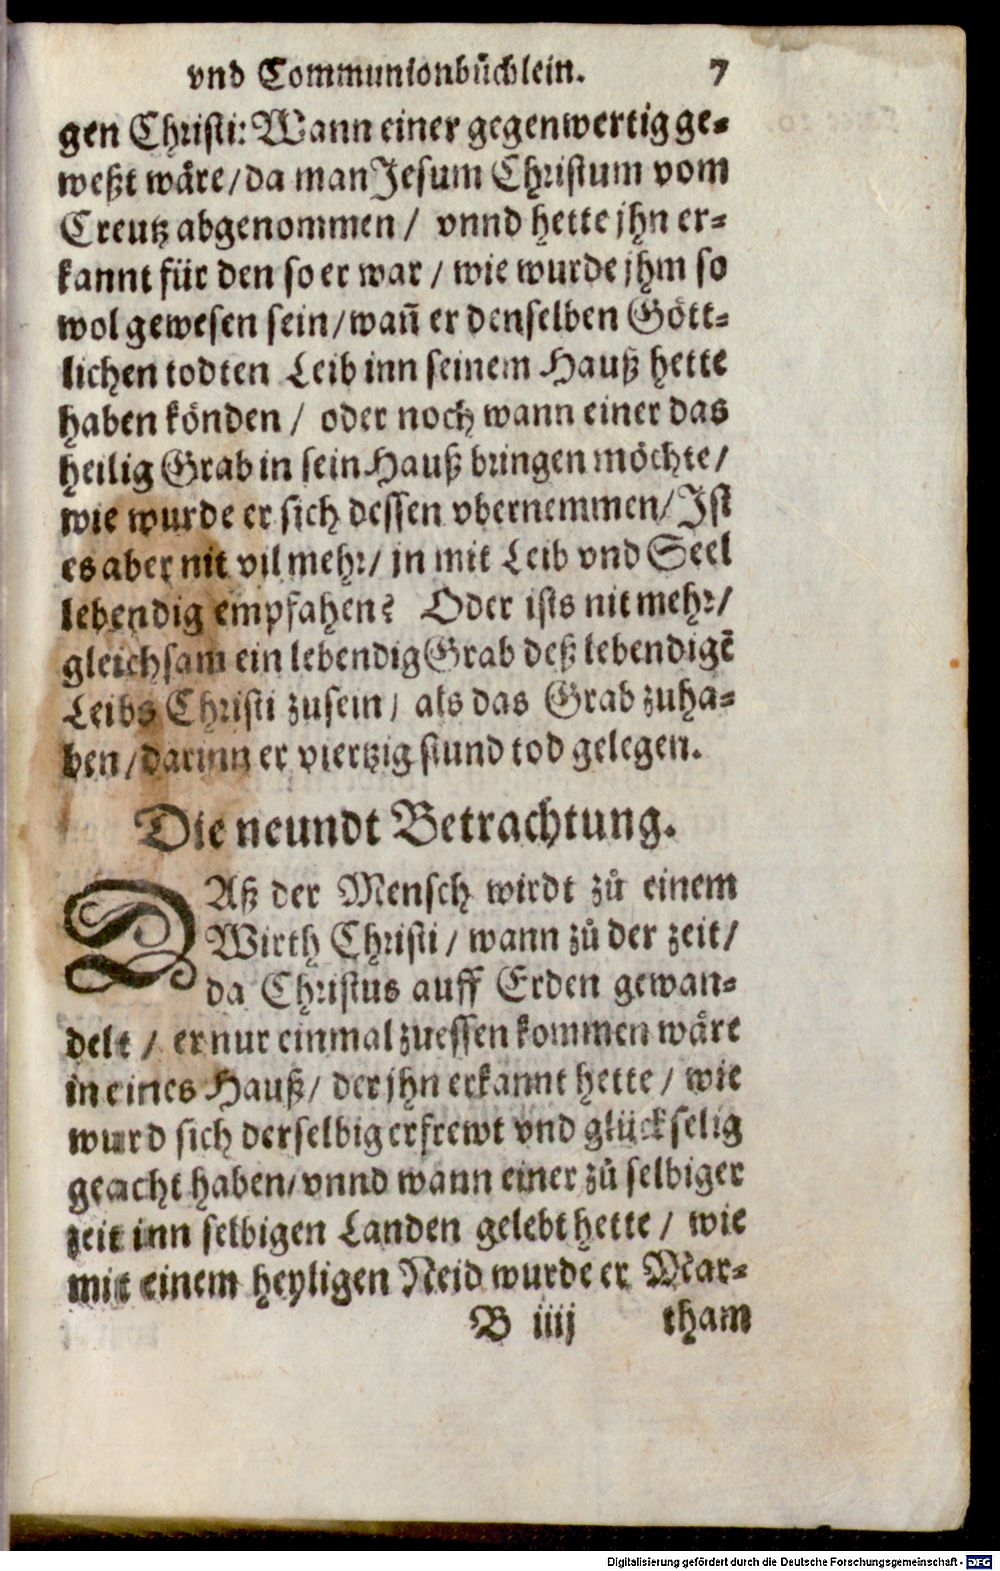 vnd Communionbuͤchlein. 7
gen Christi: Wann einer gegenwertig ge-
weßt waͤre/ da man Jesum Christum vom
Creutz abgenommen/ vnnd hette jhn er-
kannt für den so er war/ wie wurde jhm so
wol gewesen sein/ wañ er denselben Goͤtt-
lichen todten Leib inn seinem Hauß hette
haben koͤnden/ oder noch wann einer das
heilig Grab in sein Hauß bringen moͤchte/
wie wurde er sich dessen vbernemmen/ Ist
es aber nit vil mehr/ jn mit Leib vnd Seel
lebendig empfahen? Oder ists nit mehr/
gleichsam ein lebendig Grab deß lebendigẽ
Leibs Christi zusein/ als das Grab zuha-
ben/ darinn er viertzig stund tod gelegen.
Die neundt Betrachtung.
DAß der Mensch wirdt zů einem
Wirth Christi/ wann zů der zeit/
da Christus auff Erden gewan-
delt/ er nur einmal zuessen kommen waͤre
in eines Hauß/ der jhn erkannt hette/ wie
wurd sich derselbig erfrewt vnd glückselig
geacht haben/ vnnd wann einer zů selbiger
zeit inn selbigen Landen gelebt hette/ wie
mit einem heyligen Neid wurde er Mar-
B iiij tham
Digitalisierung gefördert durch die Deutsche Forschungsgemeinschaft - DFG